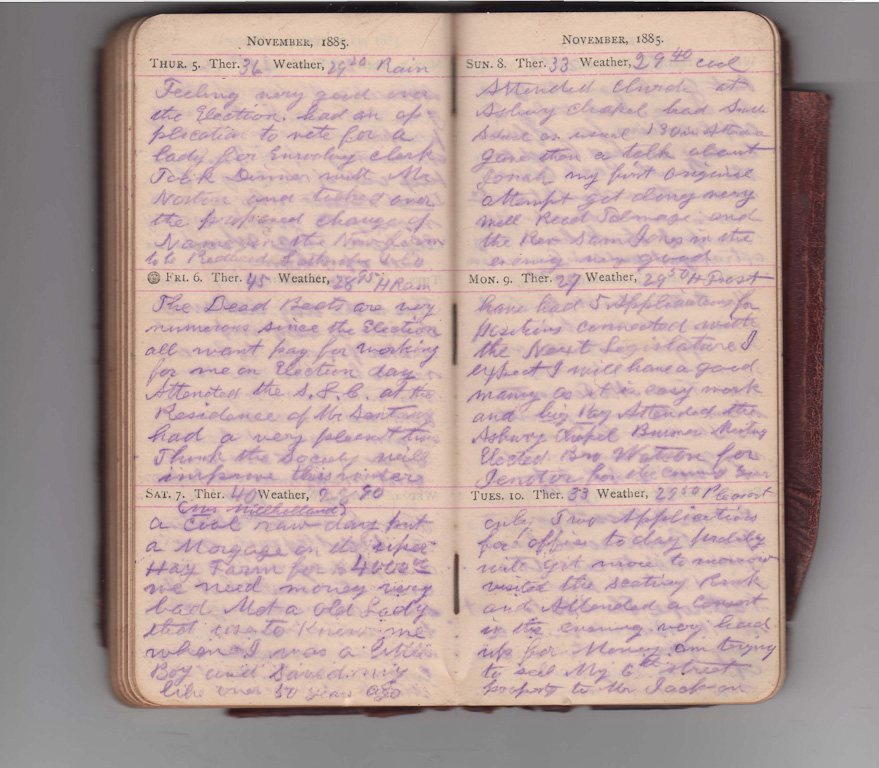 NOVEMBER, 1885.
THUR. 5. Ther. 36 Weather, 29 20 Rain
Feeling very good over
the Election. had an ap=
plication to vote for a
lady for Enrolling clerk
Took Dinner with Mr
Norton and talked over
the proposed change of
Name in the New Farm
to be
FRI. 6. Ther. 45 Weather, 28 95 H Rain
The Dead Beats are very
numerous since the Election
all want pay for working
for me on Election day
Attended the S. S. C. at the
Residence of Mr
had a very pleasent time
Think the Society will
improve this winter
SAT. 7. Ther. 40 Weather, 90
(Mrs Millholland)
a cool raw day put
a Morgage on the upper
Hay Farm for $4000
we need money very
bad. Met a old Lady
that use to Know me
when I was a little
Boy and Saved my
life over 50 years ago
NOVEMBER, 1885.
SUN. 8. Ther. 33 Weather, 29 40 cool
Attended Church at
Asbury Chapel had
School as usual 130 in
gave them a talk about
Jonah my first original
attempt got along very
well Read Talmage and
the Rev Sam Jones in the
evening very good
MON. 9. Ther. 27 Weather, 29 50 H Frost
have had 5 Applications for
positions connected with
the Next Legislature I
expect I will have a good
many as it is easy work
and big Pay Attended the
Asbury Chapel Business Meeting
Elected Bro Watson for
Janitor for the coming year
TUES. 10. Ther. 33 Weather, 29 50 Pleasant
only Two Applications
for office to day probily
will get more to morrow
visited the scating Rink
and Attended a Consert
in the evening very hard
up for Money am trying
to sell My 6th street
property to Mr Jackson